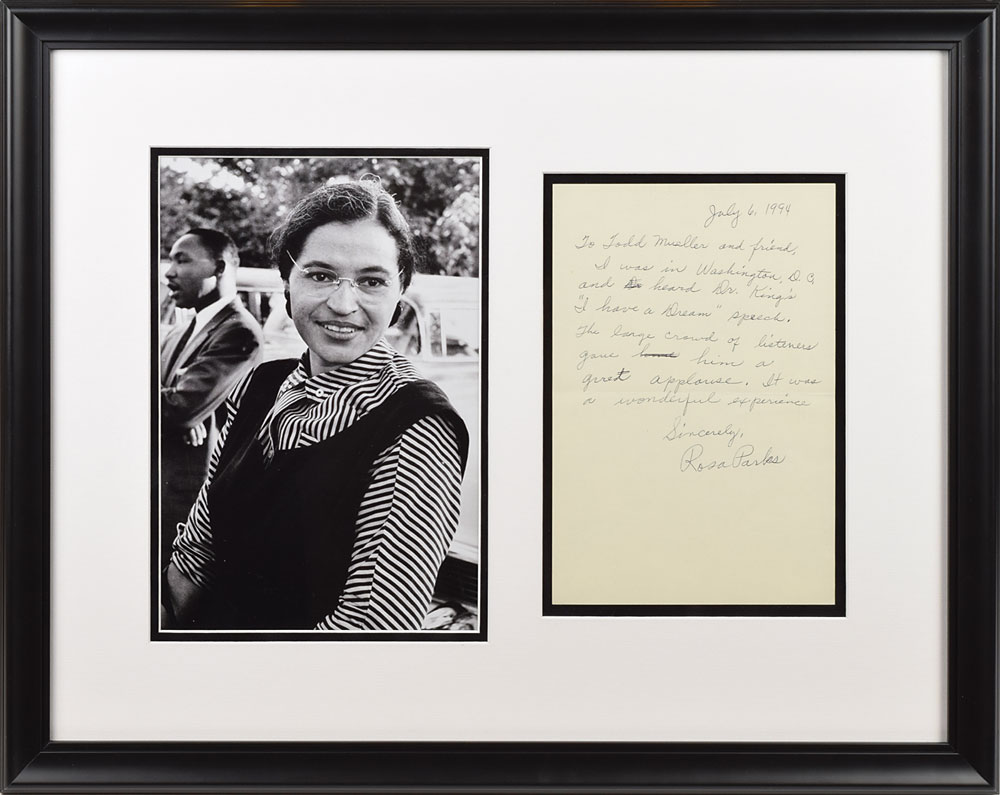 July 6, 1994
To Todd Mueller and friend,
I was in Washington, D.C.
and heard Dr. King's
"I have a Dream" speech.
The large crowd of listeners
gave him a
great applause. It was
a wonderful experience
Sincerely,
Rosa Parks